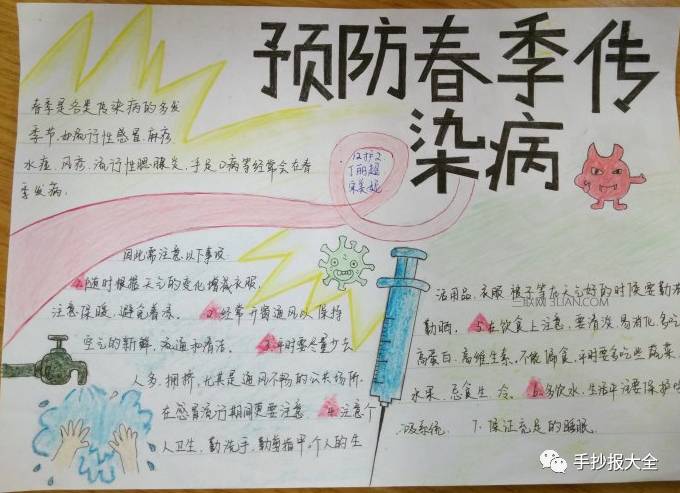 预防春季传
染病
12护2
丁丽超
春季是各类传染病的多发
季节,如流行性感冒、麻疹、
水痘、风疹、流行性腮腺炎、手足口病等经常会在春
季发病.
因此需注意以下事项:
1.随时根据天气的变化增减衣服,
注意保暖,避免着凉. 2.经常开窗通风以保持
空气的新鲜,流通和清洁. 3.平时要尽量少去
人多,拥挤,尤其是通风不畅的公共场所.
在感冒流行期间更要注意 4.注意个
人卫生,勤洗手,勤剪指甲,个人的生
活用品,衣服 被子等在天气好的时候要勤洗
勤晒. 5.在饮食上注意,要清淡,易消化,多吃
高蛋白,高维生素,不能偏食,平时要多吃些蔬菜,
水果,忌食生冷. 6.多饮水,生活中要保护呼
吸系统. 7.保证充足的睡眠.
三联网 3LIAN.COM
手抄报大全